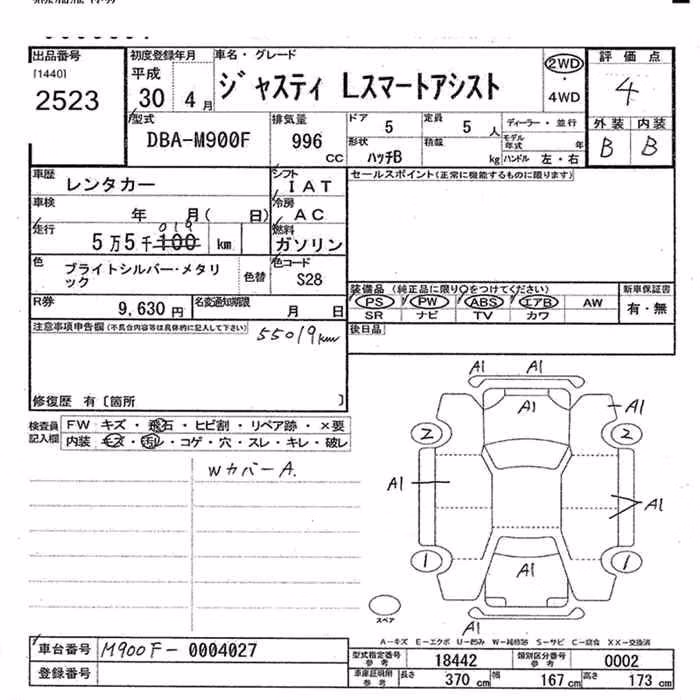 出品番号
[1440]
2523
初度登録年月
平成
30 4月
車名・グレード
ジャスティ Lスマートアシスト
2WD
・
4WD
評価点
4
外装 内装
B B
型式
DBA-M900F
排気量
996
CC
ドア
5
定員
5 人
ディーラー・並行
形状
ハッチB
積載
kg
モデル年式 年
ハンドル 左・右
車歴
レンタカー
シフト
IAT
セールスポイント(正常に機能するものに限ります)
車検
年 月( 日)
冷房
AC
走行
019
5万5千100 km
燃料
ガソリン
色
ブライトシルバー・メタリ
ック
色替
色コード
S28
R券
9,630 円
名変通知期限
月 日
装備品 (純正品に限り○をつけてください)
PS PW ABS エアB AW
SR ナビ TV カワ
新車保証書
有・無
後日品
注意事項申告欄(不具合内容等は具体的に記入して下さい)
55019km
修復歴 有〔箇所 〕
検査員
記入欄
FW キズ・飛石・ヒビ割・リペア跡・×要
内装 キズ・汚レ・コゲ・穴・スレ・キレ・破レ
WカバーA.
A1 A1
A1
A1
2 2
A1
A1
1 1
A1
A1
スペア
A-キズ E-エクボ U-凹み W-補修跡 S-サビ C-腐食 XX-交換済
車台番号
M900F-0004027
登録番号
型式指定番号
参考
18442
類別区分番号
参考
0002
車庫証明附
参考
長さ 370 cm 幅 167 cm 高さ 173 cm